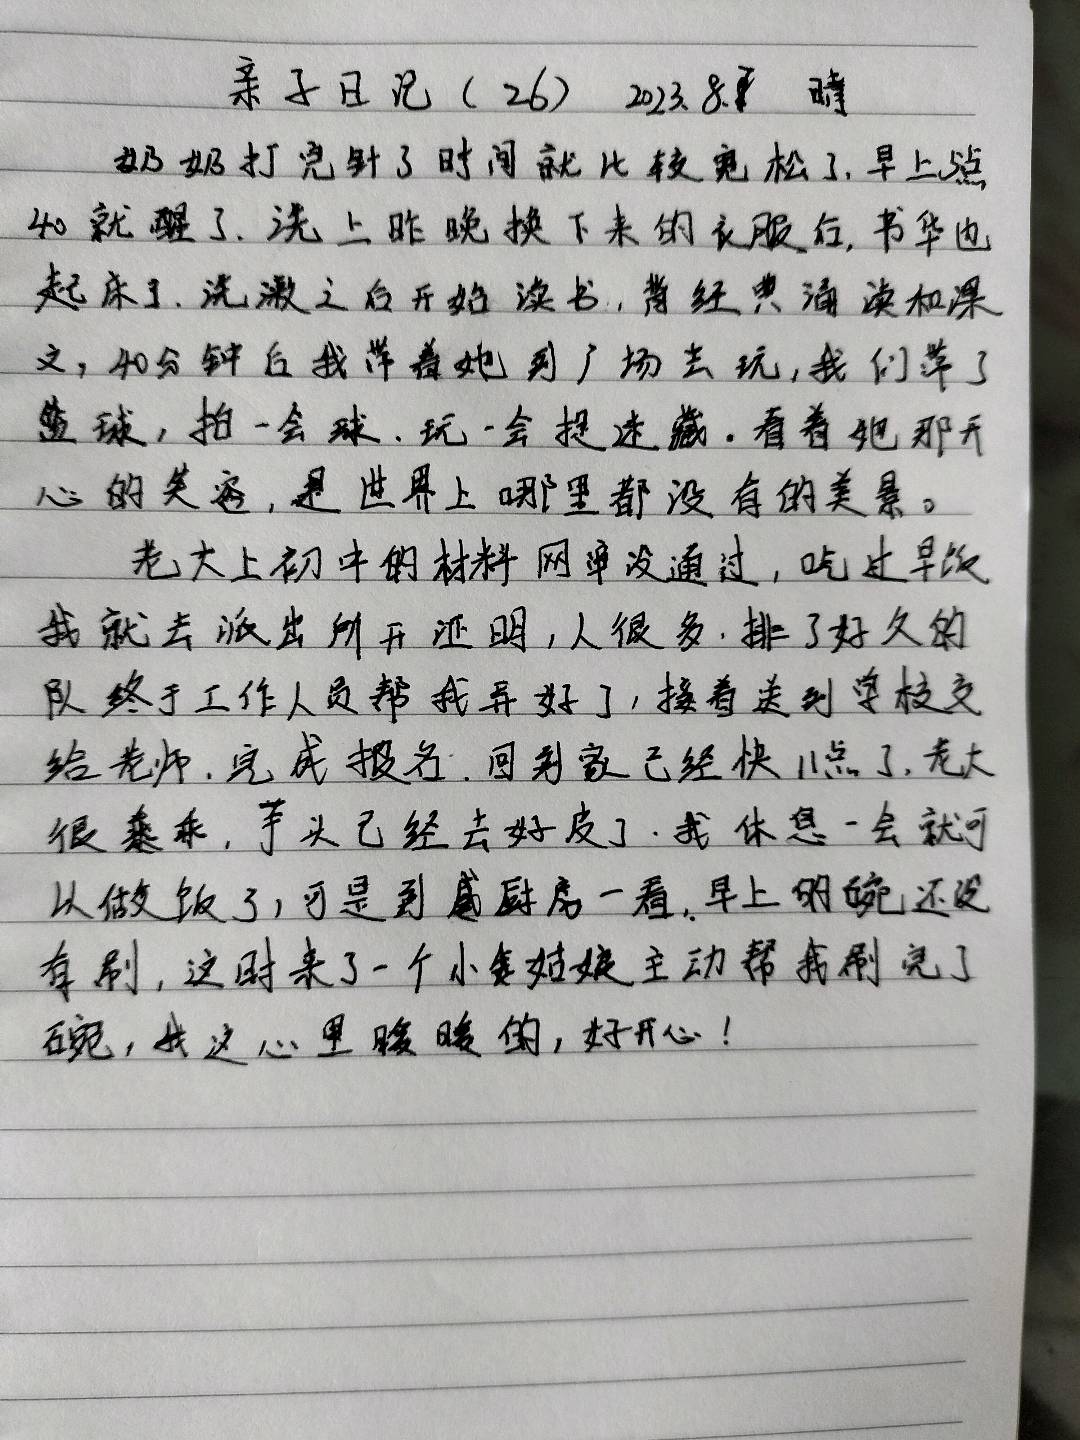 亲子日记(26) 2023.8. 晴
奶奶打完针了时间就比较宽松了.早上5点
40就醒了.洗上昨晚换下来的衣服后,书华也
起床了.洗漱之后开始读书,背经典诵读和课
文,40分钟后我带着她到广场去玩,我们带了
篮球,拍一会球.玩一会捉迷藏.看着她那开
心的笑容,是世界上哪里都没有的美景。
老大上初中的材料网审没通过,吃过早饭
我就去派出所开证明,人很多.排了好久的
队终于工作人员帮我弄好了,接着送到学校交
给老师.完成报名.回到家已经快11点了.老大
很乖乖,芋头已经去好皮了.我休息一会就可
以做饭了,可是到厨房一看.早上的碗还没
有刷,这时来了一个小姑娘主动帮我刷完了
碗,我这心里暖暖的,好开心!